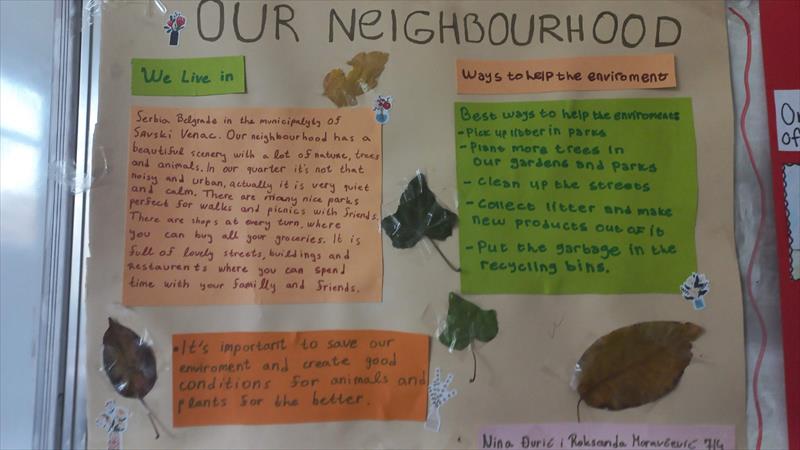 OUR NEIGHBOURHOOD
We Live in
Serbia Belgrade in the municipalyty of
Savski Venac. Our neighbourhood has a
beautiful scenery with a lot of nature, trees
and animals. In our quarter it's not that
noisy and urban, actually it is very quiet
and calm. There are many nice parks
perfect for walks and picnics with friends.
There are shops at every turn, where
you can buy all your groceries. It is
full of lovely streets, buildings and
restaurents where you can spend
time with your familly and friends.
Ways to help the enviroment
Best ways to help the enviroments
- Pick up litter in parks
- Plant more trees in
our gardens and parks
- Clean up the streets
- Collect litter and make
new products out of it
- Put the garbage in the
recycling bins.
• It's important to save our
enviroment and create good
conditions for animals and
plants for the better.
Nina Đurić i Roksanda Moravčević 7/4